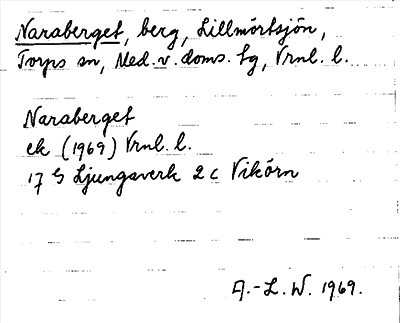 Naraberget, berg, Lillmörtsjön,
Torps sn, Med. v. doms. tg, Vrnl. l.
Naraberget
ek (1969) Vrnl. l.
17 G Ljungaverk 2 c Vikörn
A.-L. W. 1969.